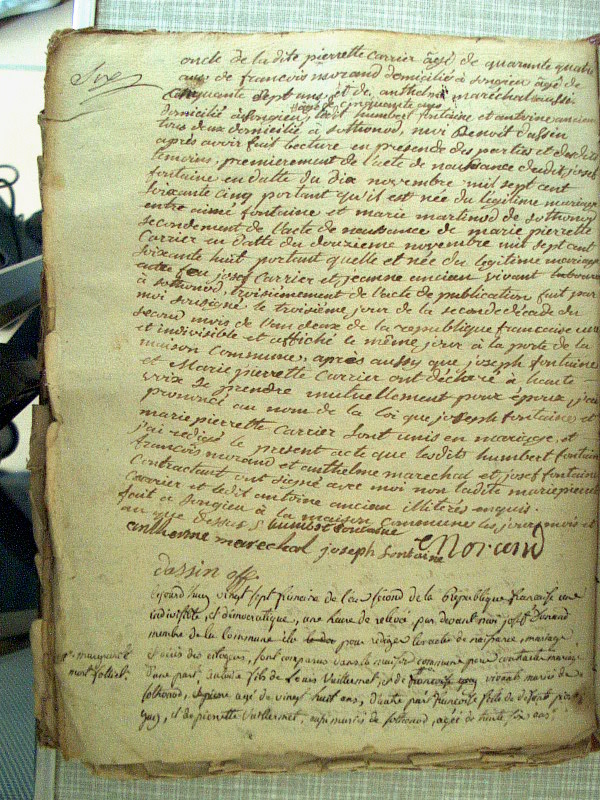 oncle de la dite pierrette Carrier âgé de quarante quatre
ans de francois morand domicilié a Songieu âgé de
Cinquante Sept ans, et de anthelme maréchal aussi
âgé de cinquante ans
domicilié a Songieu, humbert fontaine et antoine ancian
tous deux domicilié a sothonod, moi Benoit dassin
après avoir fait lecture en presende des parties et des dits
temoins, premierement de l'acte de naissance dudit josef
fontaine en datte du dix novembre mil sept cent
soixante cinq portant qu'il est née du legitime mariage
entre aimé fontaine et marie martinod de sothonod
secondement de l'acte de naissance de marie pierrette
Carrier en datte du douzieme novembre mil sept cent
soixante huit portant quelle et née du legitime mariage
entre feu josef Carrier et jeanne ancian vivant laboureur
à sothonod, troisiemement de l'acte de publication fait par
moi sousigné le troisième jour de la seconde decade du
second mois de l'an deux de la republique francaise une
et indivisible et affiché le même jour à la porte de la
maison Commune, après aussy que joseph fontaine
et Marie pierrette Carrier ont déchéré à haute
voix se prendre mutuellement pour époux, j'ai
prononcé au nom de la loi que joseph fontaine et
marie pierrette Carrier sont unis en mariage, et
j'ai redigé le present acte que lesdits humbert fontaine
francois morand et anthelme marechal et josef fontaine
Contractant ont signé avec moi non ladite marie pierrette
Carrier et ledit antoine ancian illiterés enquis.
fait a Songieu a la maison Commune les jour mois et
an que dessus humbert fontaine
anthelme marechal joseph fontaine Morand
dassin off.
aujourd'huy vingt sept frimaire de l'an second de la République francaise une
indivisible, et démocratique, une heure de relevée, par devant moi josef
membre de la Commune élu pour rediger les actes de naissance, mariage
et décès des citoyens, sont comparus dans la maison commune pour contracter mariage
d'une part fils de Louis Vuillermet, et de francoise guy vivants mariés de
sothonod, agé de vingt huit ans, d'autre part francoise fille de défunt
guy, et de pierrette Vuillermet, mariés de sothonod, agée de trente six ans